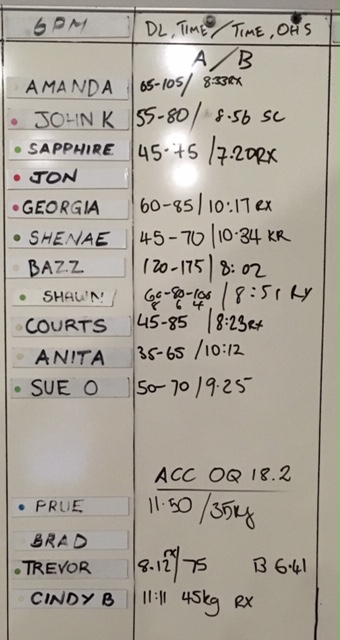 6PM DL, TIME / TIME, OHS
A / B
AMANDA 65-105 / 8:33RX
JOHN K 55-80 / 8.56 SC
SAPPHIRE 45-75 / 7.20RX
JON
GEORGIA 60-85 / 10:17 RX
SHENAE 45-70 / 10:34 KR
BAZZ 120-175 / 8:02
SHAUN 60-80-100 / 8:51 RX
8 6 4
COURTS 45-85 / 8:23RX
ANITA 35-65 / 10:12
SUE O 50-70 / 9.25
ACC OQ 18.2
PRUE 11.50 / 35kg
BRAD
TREVOR 8.12 RX / 75 B 6.41
CINDY B 11:11 45kg RX